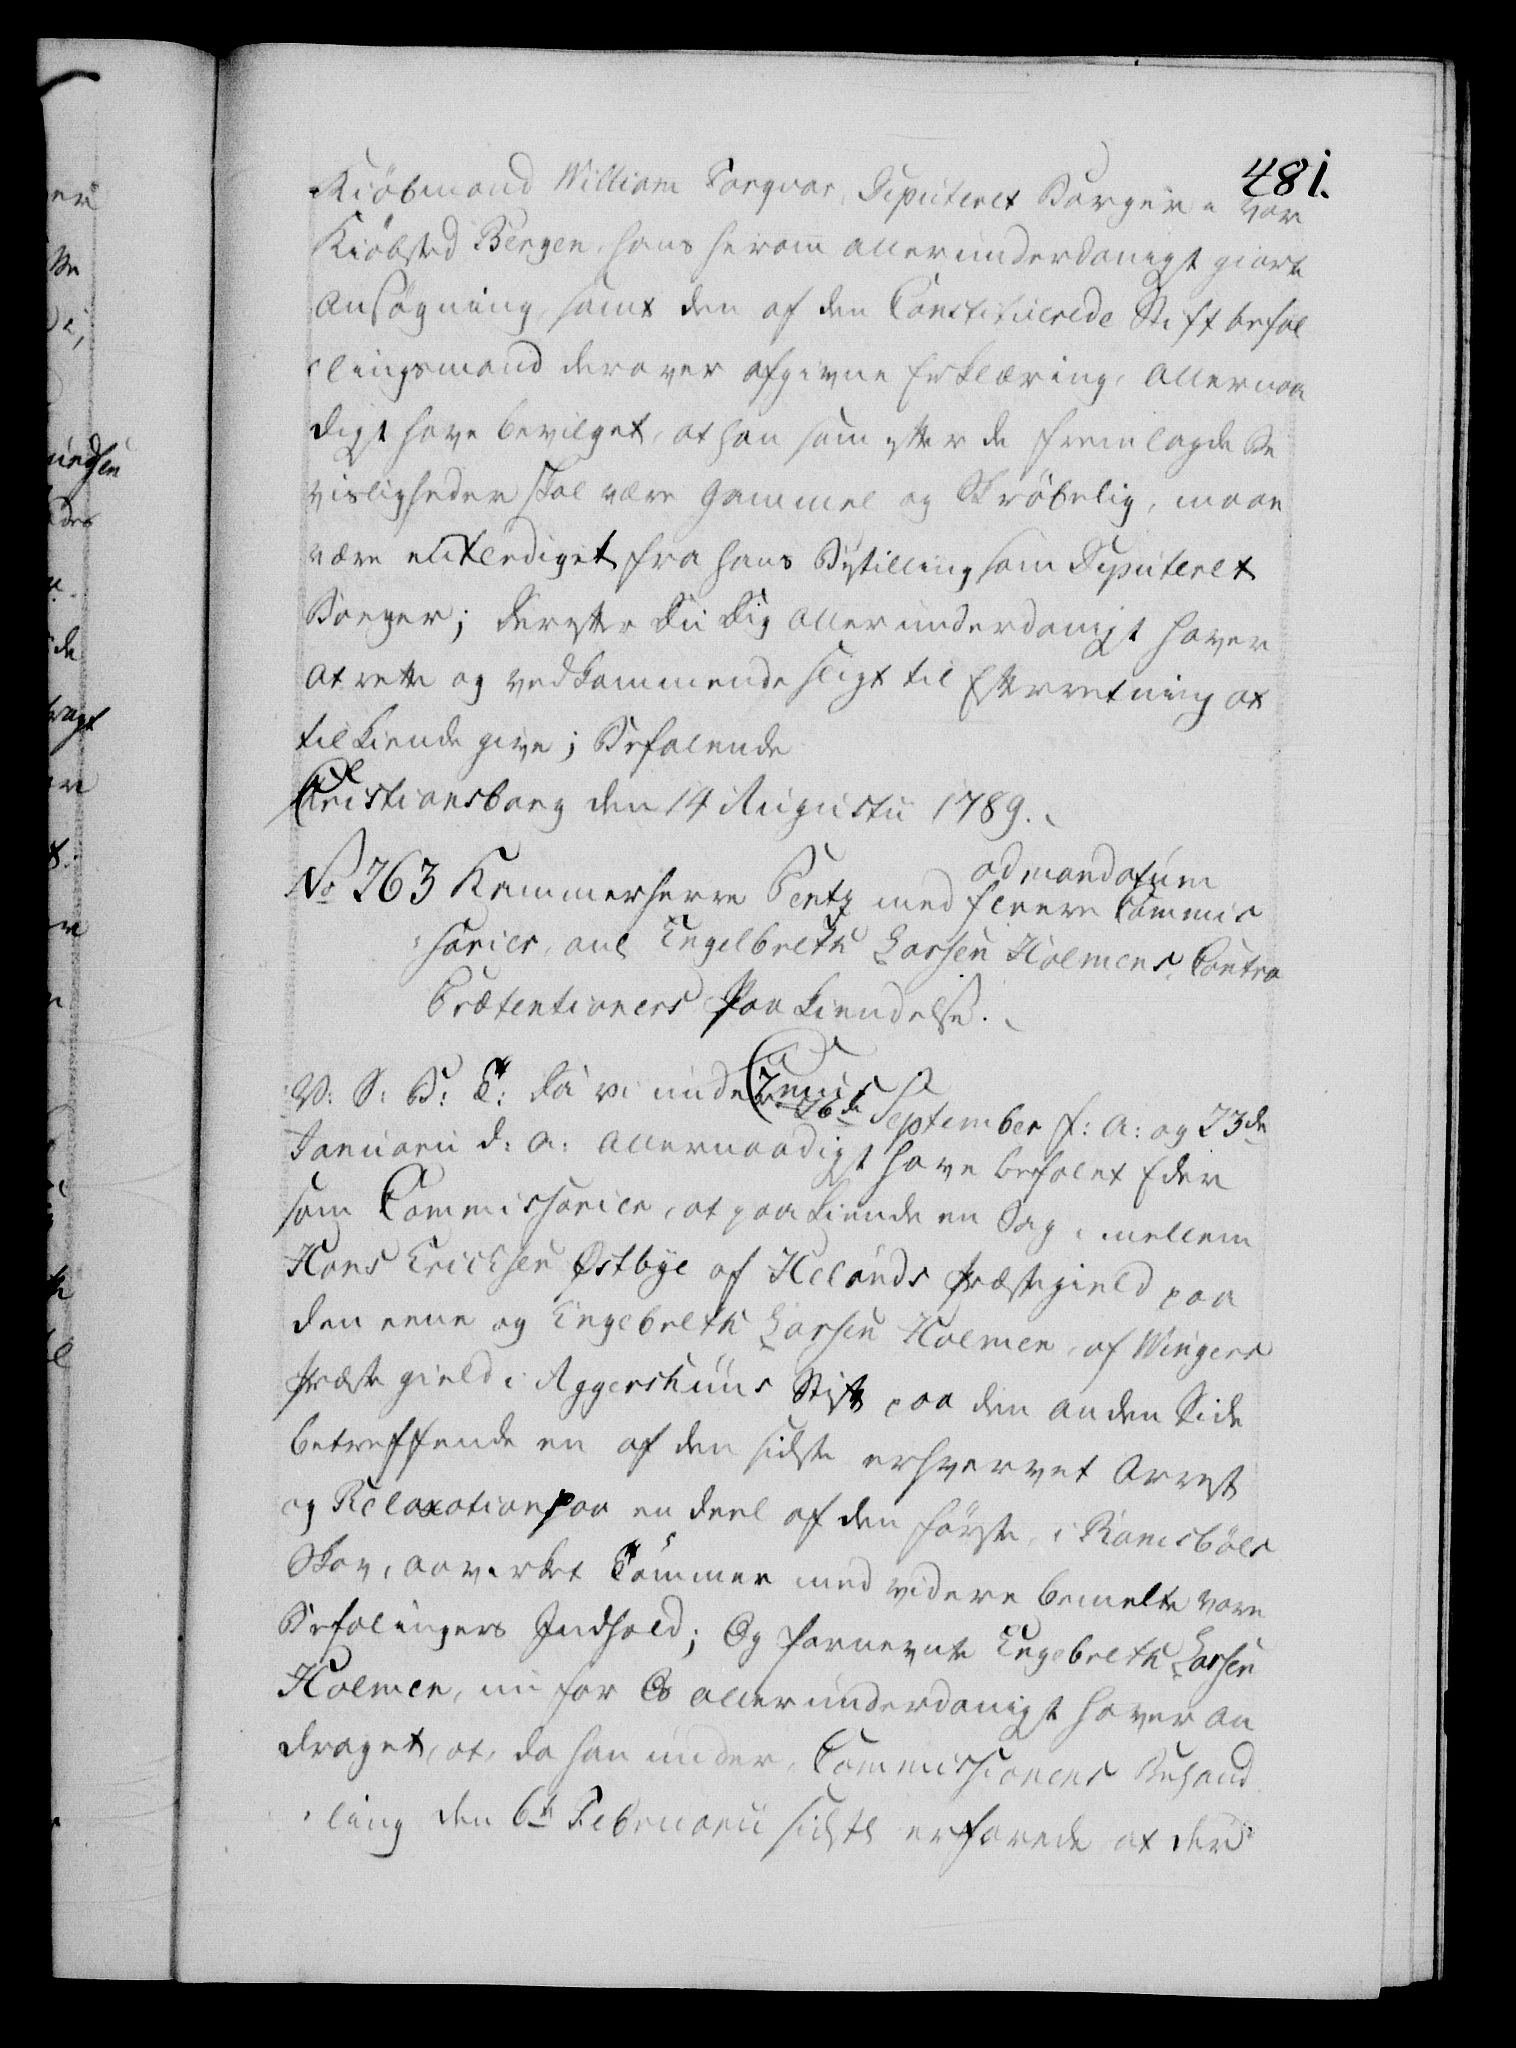 481.
Kiöbmand William Farqvar, Deputeret Borger i vor
Kiöbsted Bergen, hans herom allerunderdanigst giorte
Ansögning, samt den af den Constituerede Stiftbefal
lingsmand derover afgivne Erklæring, Allernaa
digst have bevilget, at han som efter de fremlagde Be
visligheder skal være gammel og Skröbelig, maae
være entlediget fra hans Bestilling som Deputeret
Borger; Derefter Du Dig allerunderdanigst haver
at rette og vedkommende sligt til Efterretning at
tilkiende give; Befalende
Christiansborg den 14 Augustii 1789.
ad mandatum
No 763 Kammerherre Pentz med flere Commis
sarier, anl Engelbreth Larsen Holmens Contra
Prætentioners Paakiendelse.
V: S: B: T: Da vi under 26de September f: A: og 23de
Januarii d: A: Allernaadigst have befalet Eder
som Commissarier, at paakiende en Sag, imellem
Hans Erichsen Østbye af Helands Præstegield paa
den eene og Engebreth Larsen Holmen, af Wingers
Præstegield i Aggershuus Stift paa den anden Side
betreffende en af den sidste erhvervet Arrest
og Relaxation paa en deel af den förste, i Ramsböls
Skov, aavirket Tömmer med videre bemelte vore
Befalingers Indhold; Og fornevnte Engebreth Larsen
Holmen, nu for Os allerunderdanigst haver an
draget, at, da han under Commissionens Behand
ling den 6te Februarii sidste erfarede at der